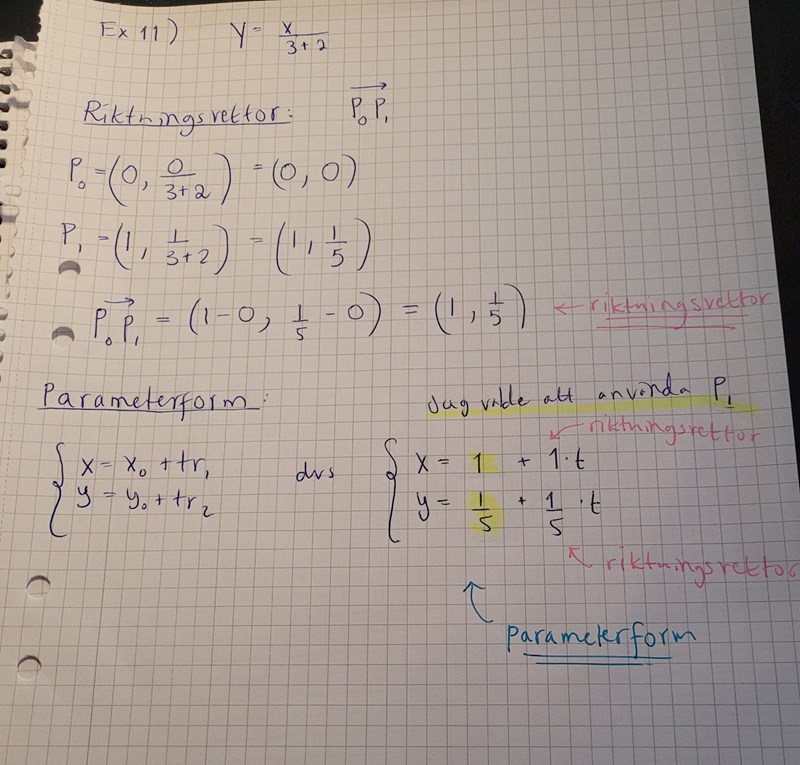 Ex 11) y = x/(3+2)
Riktningsvektor: P₀P₁→
P₀ = (0, 0/(3+2)) = (0, 0)
P₁ = (1, 1/(3+2)) = (1, 1/5)
P₀P₁→ = (1-0, 1/5 - 0) = (1, 1/5) ← riktningsvektor
Parameterform: Jag valde att använda P₁
↙ riktningsvektor
{ x = x₀ + tr₁ dvs { x = 1 + 1·t
{ y = y₀ + tr₂ { y = 1/5 + 1/5 ·t
↖ riktningsvektor
↖ parameterform